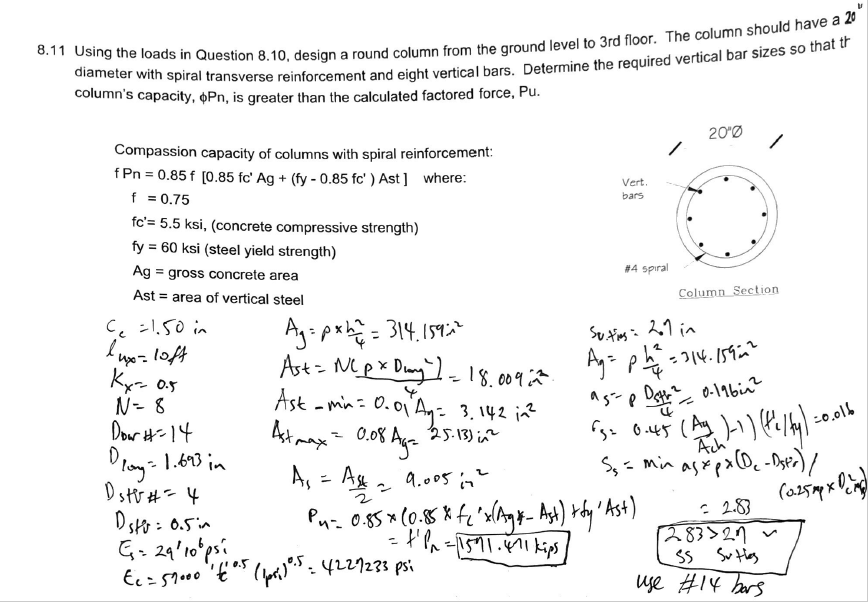 8.11 Using the loads in Question 8.10, design a round column from the ground level to 3rd floor. The column should have a 20"
diameter with spiral transverse reinforcement and eight vertical bars. Determine the required vertical bar sizes so that th
column's capacity, ϕPn, is greater than the calculated factored force, Pu.
Compassion capacity of columns with spiral reinforcement:
f Pn = 0.85 f [0.85 fc' Ag + (fy - 0.85 fc' ) Ast ] where:
f = 0.75
fc'= 5.5 ksi, (concrete compressive strength)
fy = 60 ksi (steel yield strength)
Ag = gross concrete area
Ast = area of vertical steel
20"Ø
Vert.
bars
#4 spiral
Column Section
Cc = 1.50 in
lux = 10ft
Kx = 0.5
N = 8
Dbar # = 14
Dlong = 1.693 in
Dstr # = 4
Dstr = 0.5 in
Es = 29'10⁶ psi
Ec = 57000 'fc'^0.5 (1psi)^0.5 = 4227233 psi
Ag = p x h²/4 = 314.159 in²
Ast = N(p x Dlong²)/4 = 18.009 in²
Ast-min = 0.01 Ag = 3.142 in²
Ast max = 0.08 Ag = 25.133 in²
As = Ast/2 = 9.005 in²
Pn = 0.85 x (0.85 x fc' x (Ag - Ast) + fy' Ast)
= f'Pn = 1571.471 kips
Su ties = 2.7 in
Ag = p h²/4 = 314.159 in²
as = p Dstr²/4 = 0.196 in²
rs = 0.45 (Ag/Ach)-1) (f'c/fy) = 0.016
Ss = min as x p x (Dc - Dstr) /
= 2.83
2.83 > 2.7 ✓
Ss Su ties
use #14 bars